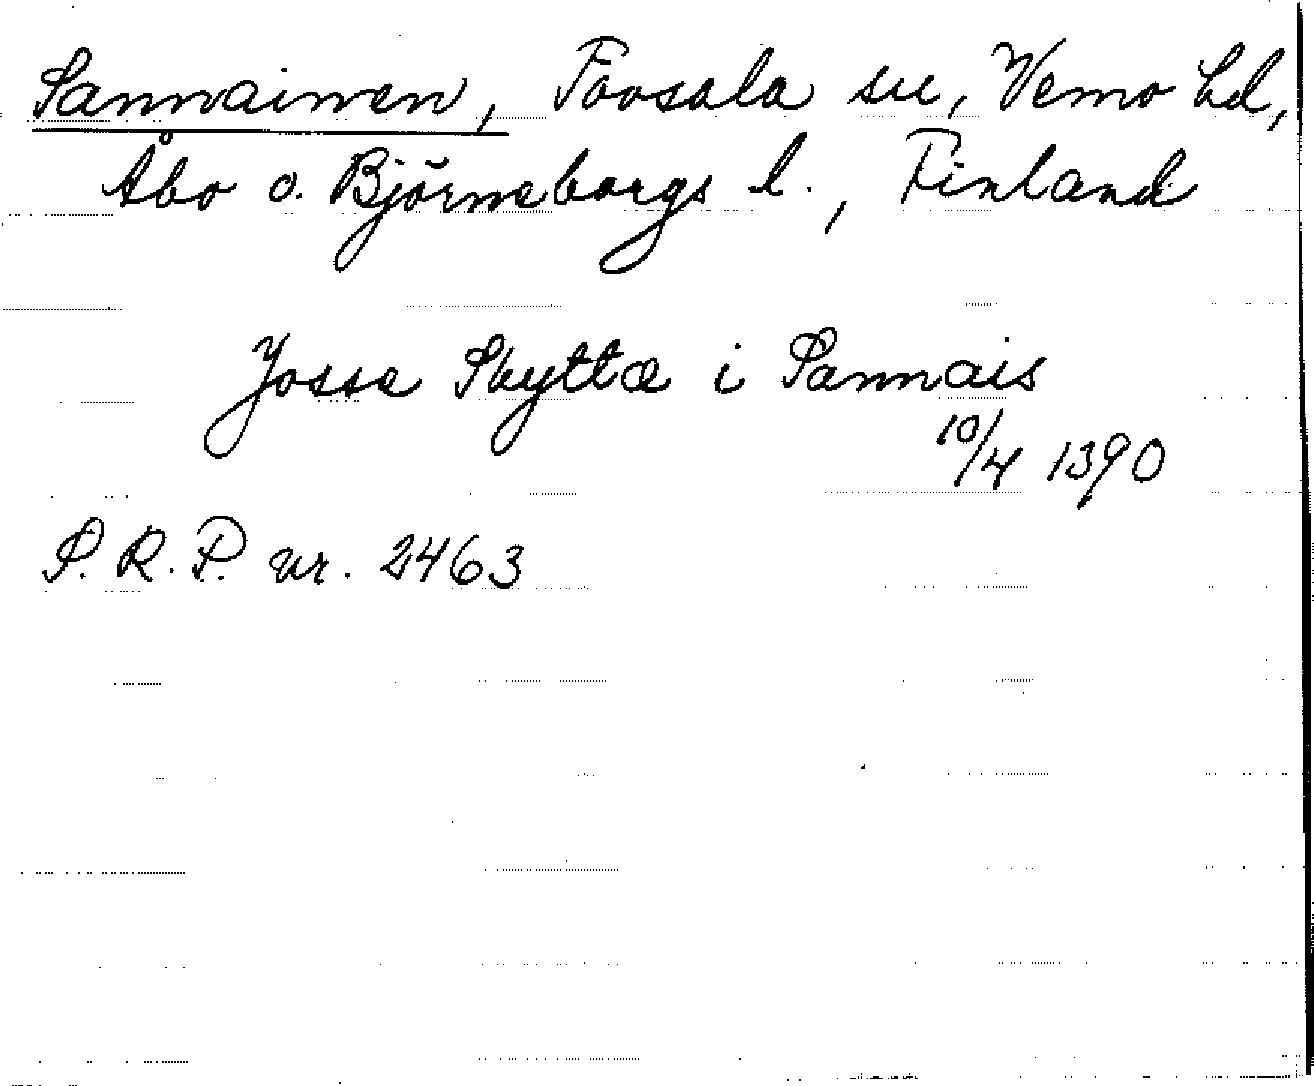 Sannainen, Tövsala sn, Vemo hd,
Åbo o. Björneborgs l., Finland
Josse Skyttæ i Sannais
10/4 1390
S. R. P. nr. 2463